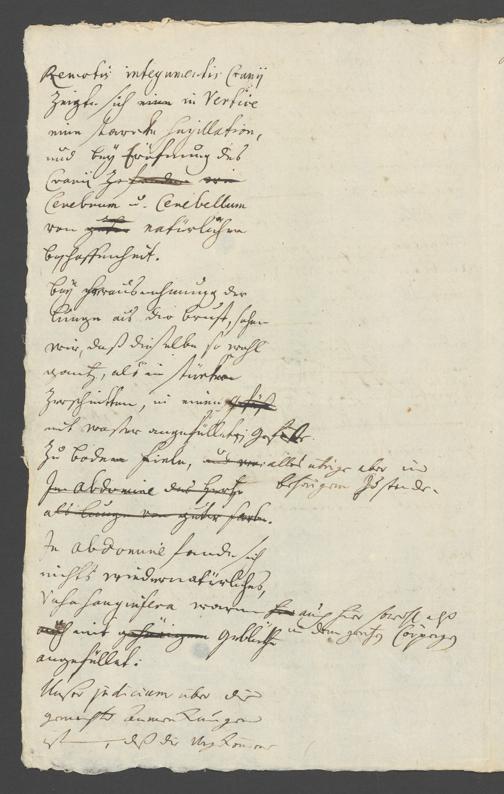 Remotis integumentis Cranij
Zeigte sich eine in Vertice
eine starcke Sugillation,
und beÿ Eröfnung des
Cranij
Cerebrum u. Cerebellum
von natürlicher
beschaffenheit.
beÿ herausnehmung der
Lunge aus der brust, sahen
wir, daß dieselbe so wohl
gantz, als in stücken
Zerschnitten, in einem
mit waßer angefülletes gefäße
Zu boden fielen, alles übrige aber im
behörigen Zustande.
In Abdomine des
als Lunge von guter farbe.
In Abdomine fande sich
nichts wiedernatürliches,
Vasa sanguifera waren auch hier sowohl als
in dem gantzen Cörper
mit Geblüthe
angefüllet.
Unser judicium über die
gemachte Anmerckungen
ist, daß die